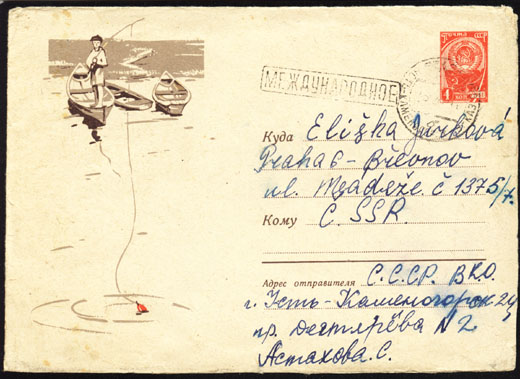 МЕЖДУНАРОДНОЕ
ПОЧТА СССР
Куда Eliška Jurková
Praha 6 – Břevnov
ul. Mládeže č 1375/7.
Кому Č. SSR.
Адрес отправителя С.С.С.Р. В.К.О.
г. Усть-Каменогорск 24
пр. Дегтярёва N 2
Астахова С.